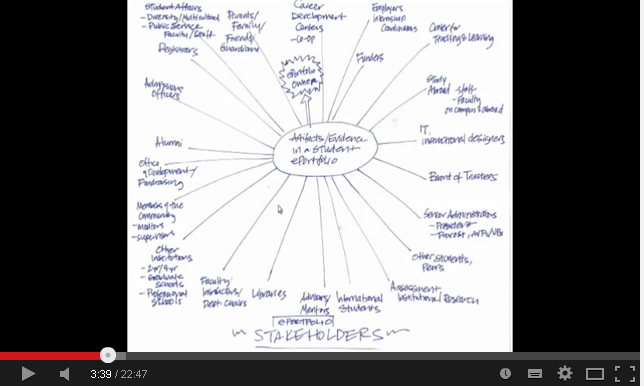 Student Affairs
- Diversity/Multicultural
- Public Service
Faculty/Staff
Registrars
Admissions
Officers
Alumni
Office
of Development/
Fundraising
Members of the
Community
- mentors
- supervisors
Other
Institutions
- 2yr/4yr
- Graduate
schools
- Professional
Schools
Parents/
Family/
Friends/
Guardians
Career
Development
Centers
- CO-OP
ePortfolio
owner
Employers
Internship
Coordinators
Funders
Center for
Teaching & Learning
Study
Abroad - staff
- Faculty
on campus & abroad
IT,
instructional designers
Board of Trustees
Senior Administrators
- President
- Provost, AVPs/VPs
Other students,
Peers
Assessment
Institutional Research
International
Students
Advisors/
Mentors
Libraries
Faculty/
Instructors/
Dept Chairs
Artifacts/Evidence
in a student
ePortfolio
ePORTFOLIO
STAKEHOLDERS
3:39 / 22:47